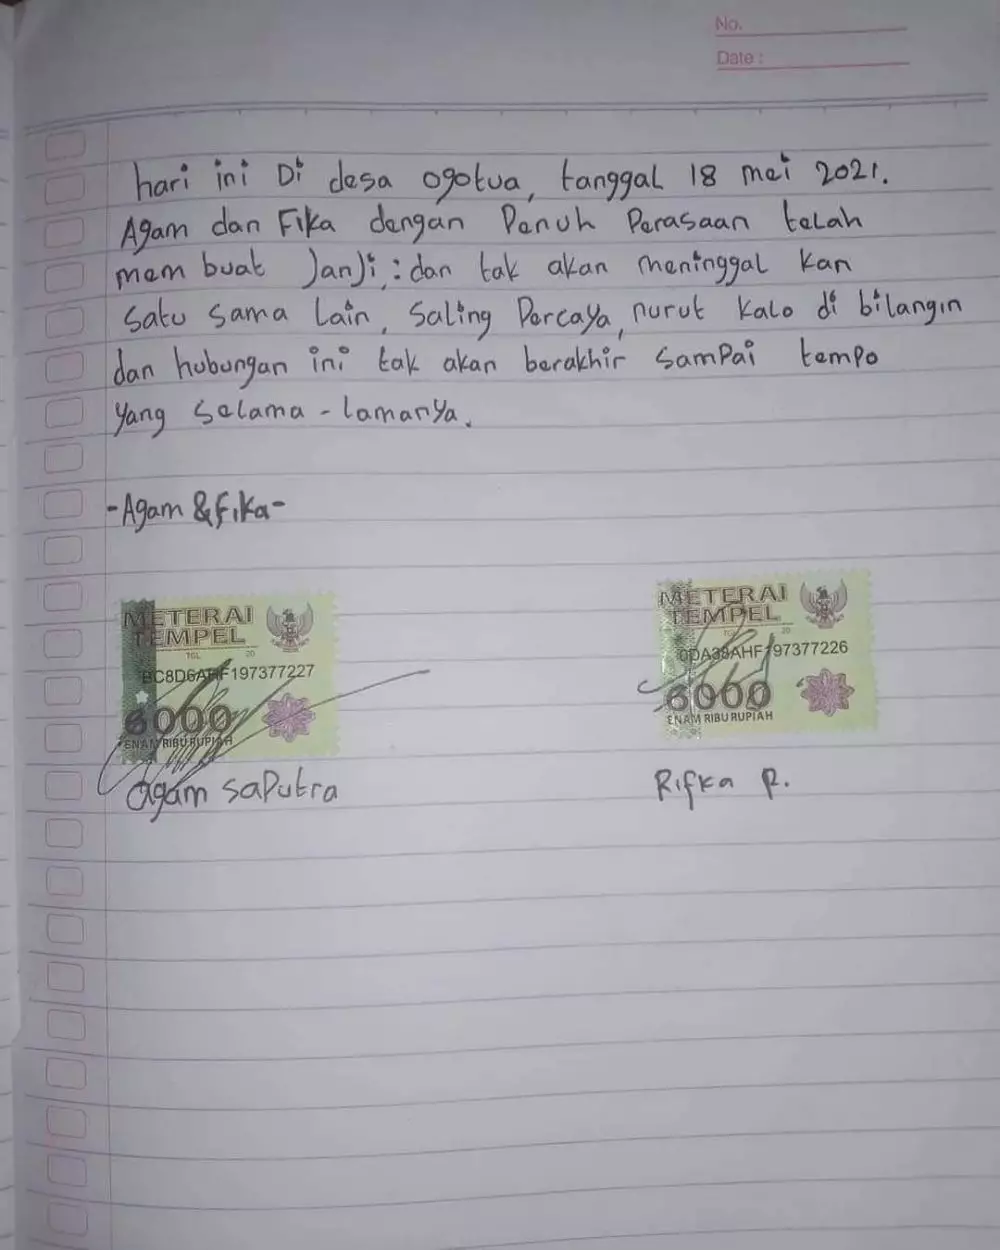 No.
Date :
hari ini Di desa ogotua, tanggal 18 mei 2021.
Agam dan Fika dengan Penuh Perasaan telah
mem buat JanJi,: dan tak akan meninggal kan
satu sama lain, saling Percaya, nurut kalo di bilangin
dan hubungan ini tak akan berakhir sampai tempo
yang selama-lamanya.
-Agam & Fika-
METERAI
TEMPEL
TGL 20
BC8D6AHF197377227
6000
ENAM RIBU RUPIAH
METERAI
TEMPEL
TGL 20
0DA38AHF197377226
6000
ENAM RIBU RUPIAH
agam saputra
Rifka R.